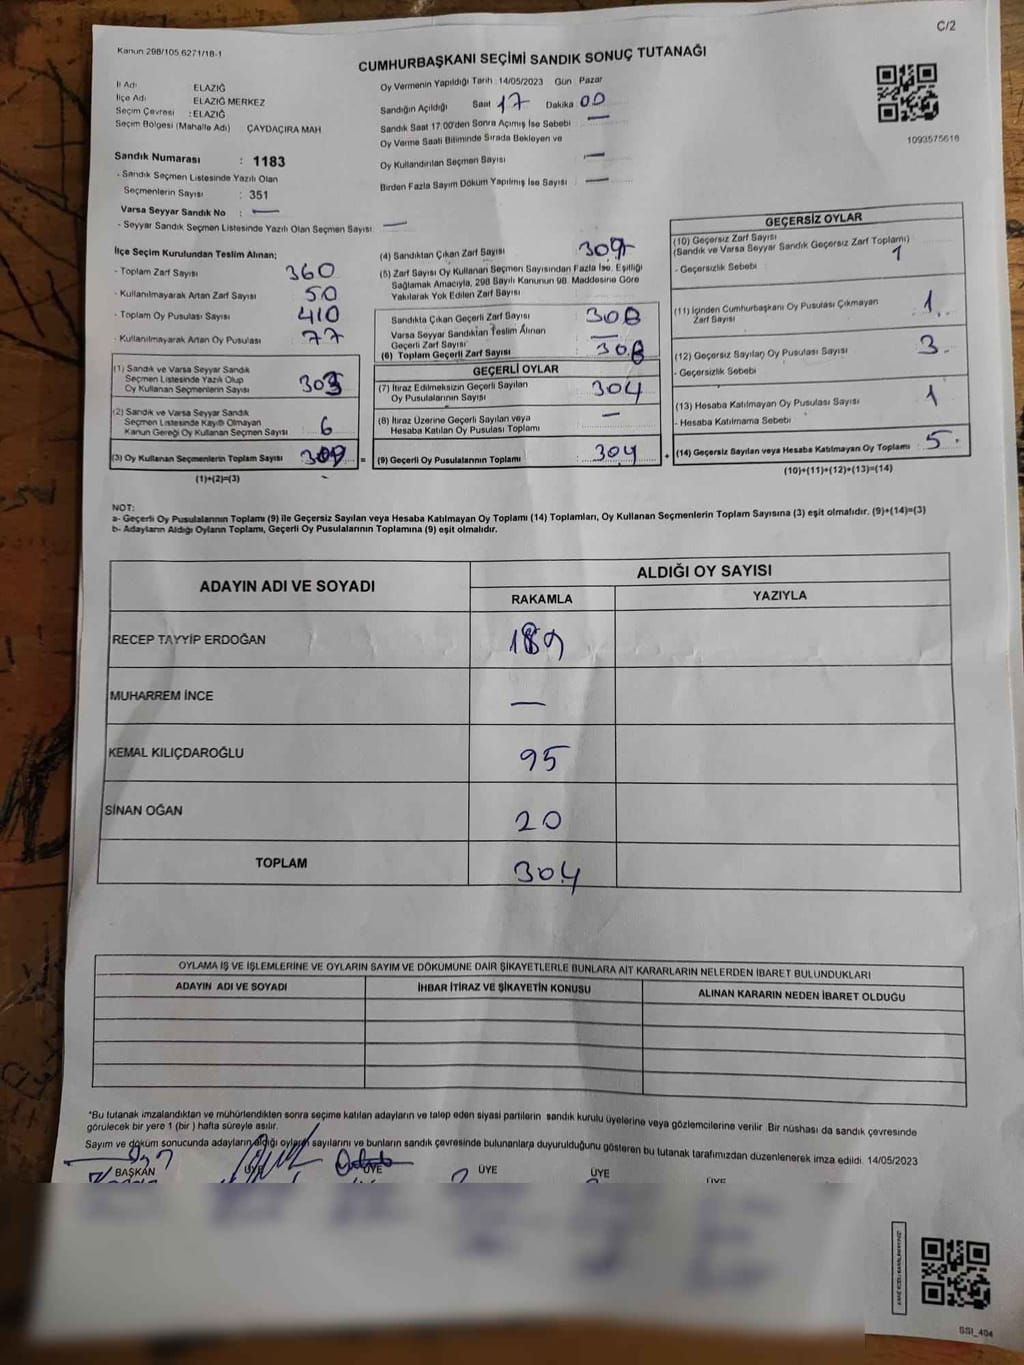 C/2
Kanun 298/105 6271/18-1
CUMHURBAŞKANI SEÇİMİ SANDIK SONUÇ TUTANAĞI
İl Adı ELAZIĞ
İlçe Adı ELAZIĞ MERKEZ
Seçim Çevresi : ELAZIĞ
Seçim Bölgesi (Mahalle Adı) ÇAYDAÇIRA MAH
Oy Vermenin Yapıldığı Tarih 14/05/2023 Gün Pazar
Sandığın Açıldığı Saat 17 Dakika 00
Sandık Saat 17:00'den Sonra Açımış İse Sebebi —
Oy Verme Saati Bitiminde Sırada Bekleyen ve
Oy Kullandırılan Seçmen Sayısı —
Birden Fazla Sayım Döküm Yapılmış İse Sayısı —
1093575618
Sandık Numarası : 1183
- Sandık Seçmen Listesinde Yazılı Olan
Seçmenlerin Sayısı : 351
Varsa Seyyar Sandık No : —
- Seyyar Sandık Seçmen Listesinde Yazılı Olan Seçmen Sayısı —
İlçe Seçim Kurulundan Teslim Alınan;
- Toplam Zarf Sayısı 360
- Kullanılmayarak Artan Zarf Sayısı 50
- Toplam Oy Pusulası Sayısı 410
- Kullanılmayarak Artan Oy Pusulası 77
(1) Sandık ve Varsa Seyyar Sandık
Seçmen Listesinde Yazılı Olup
Oy Kullanan Seçmenlerin Sayısı 303
(2) Sandık ve Varsa Seyyar Sandık
Seçmen Listesinde Kayıtlı Olmayan
Kanun Gereği Oy Kullanan Seçmen Sayısı 6
(3) Oy Kullanan Seçmenlerin Toplam Sayısı 309 =
(1)+(2)=(3)
(4) Sandıktan Çıkan Zarf Sayısı 309
(5) Zarf Sayısı Oy Kullanan Seçmen Sayısından Fazla İse, Eşitliği
Sağlamak Amacıyla, 298 Sayılı Kanunun 98. Maddesine Göre
Yakılarak Yok Edilen Zarf Sayısı
Sandıkta Çıkan Geçerli Zarf Sayısı 308
Varsa Seyyar Sandıktan Teslim Alınan
Geçerli Zarf Sayısı —
(6) Toplam Geçerli Zarf Sayısı 308
GEÇERLİ OYLAR
(7) İtiraz Edilmeksizin Geçerli Sayılan
Oy Pusulalarının Sayısı 304
(8) İtiraz Üzerine Geçerli Sayılan veya
Hesaba Katılan Oy Pusulası Toplamı —
(9) Geçerli Oy Pusulalarının Toplamı 304 +
GEÇERSİZ OYLAR
(10) Geçersiz Zarf Sayısı
(Sandık ve Varsa Seyyar Sandık Geçersiz Zarf Toplamı) 1
- Geçersizlik Sebebi
(11) İçinden Cumhurbaşkanı Oy Pusulası Çıkmayan
Zarf Sayısı 1
(12) Geçersiz Sayılan Oy Pusulası Sayısı 3
- Geçersizlik Sebebi
(13) Hesaba Katılmayan Oy Pusulası Sayısı 1
- Hesaba Katılmama Sebebi
(14) Geçersiz Sayılan veya Hesaba Katılmayan Oy Toplamı 5
(10)+(11)+(12)+(13)=(14)
NOT:
a- Geçerli Oy Pusulalarının Toplamı (9) ile Geçersiz Sayılan veya Hesaba Katılmayan Oy Toplamı (14) Toplamları, Oy Kullanan Seçmenlerin Toplam Sayısına (3) eşit olmalıdır. (9)+(14)=(3)
b- Adayların Aldığı Oyların Toplamı, Geçerli Oy Pusulalarının Toplamına (9) eşit olmalıdır.
ADAYIN ADI VE SOYADI
ALDIĞI OY SAYISI
RAKAMLA YAZIYLA
RECEP TAYYİP ERDOĞAN 189
MUHARREM İNCE —
KEMAL KILIÇDAROĞLU 95
SİNAN OĞAN 20
TOPLAM 304
OYLAMA İŞ VE İŞLEMLERİNE VE OYLARIN SAYIM VE DÖKÜMÜNE DAİR ŞİKAYETLERLE BUNLARA AİT KARARLARIN NELERDEN İBARET BULUNDUKLARI
ADAYIN ADI VE SOYADI İHBAR İTİRAZ VE ŞİKAYETİN KONUSU ALINAN KARARIN NEDEN İBARET OLDUĞU
*Bu tutanak imzalandıktan ve mühürlendikten sonra seçime katılan adayların ve talep eden siyasi partilerin sandık kurulu üyelerine veya gözlemcilerine verilir. Bir nüshası da sandık çevresinde
görülecek bir yere 1 (bir ) hafta süreyle asılır.
Sayım ve döküm sonucunda adayların aldığı oyların sayılarını ve bunların sandık çevresinde bulunanlara duyurulduğunu gösteren bu tutanak tarafımızdan düzenlenerek imza edildi. 14/05/2023
BAŞKAN ÜYE ÜYE ÜYE ÜYE ÜYE
SSI_404